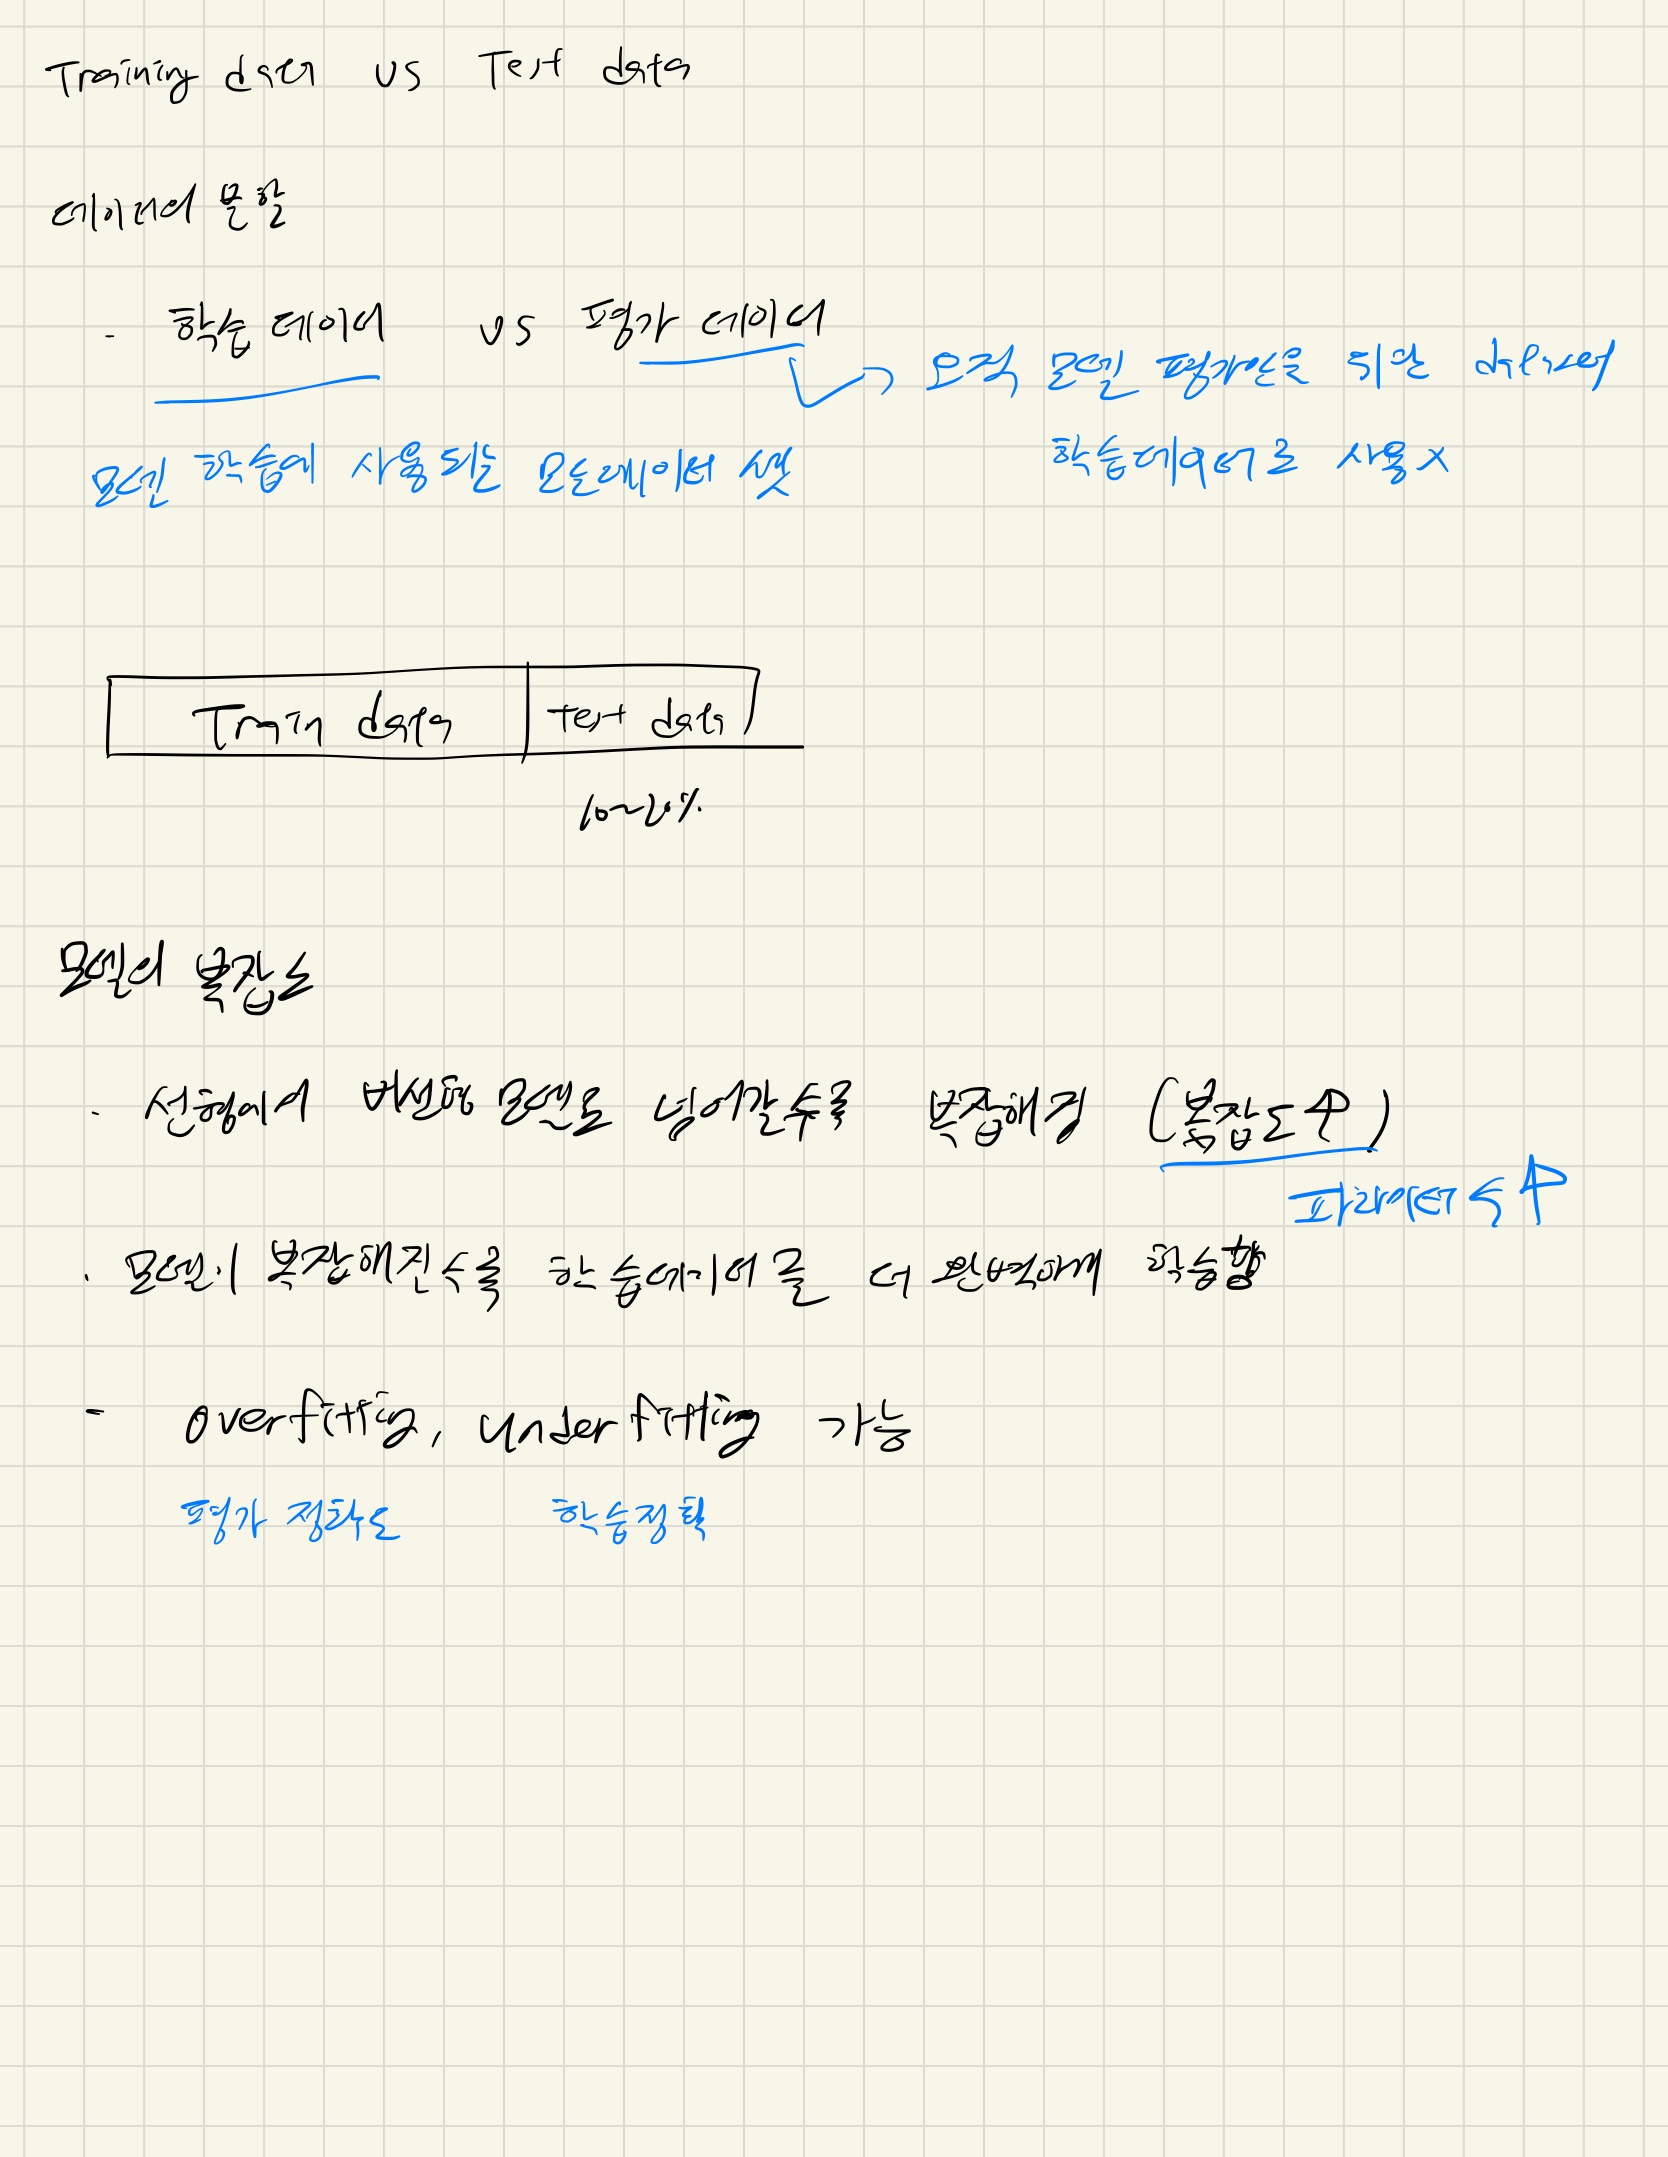 Training data vs Test data
데이터의 분할
- 학습 데이터 vs 평가 데이터
오직 모델 평가만을 위한 data set
모델 학습에 사용되는 모든데이터 셋
학습데이터로 사용 x
Train data test data
10~20%
모델의 복잡도
· 선형에서 비선형 모델로 넘어갈수록 복잡해짐 (복잡도↑)
파라미터 수↑
· 모델이 복잡해질수록 학습데이터를 더 완벽하게 학습함
- overfitting, underfitting 가능
평가 정확도 학습정확